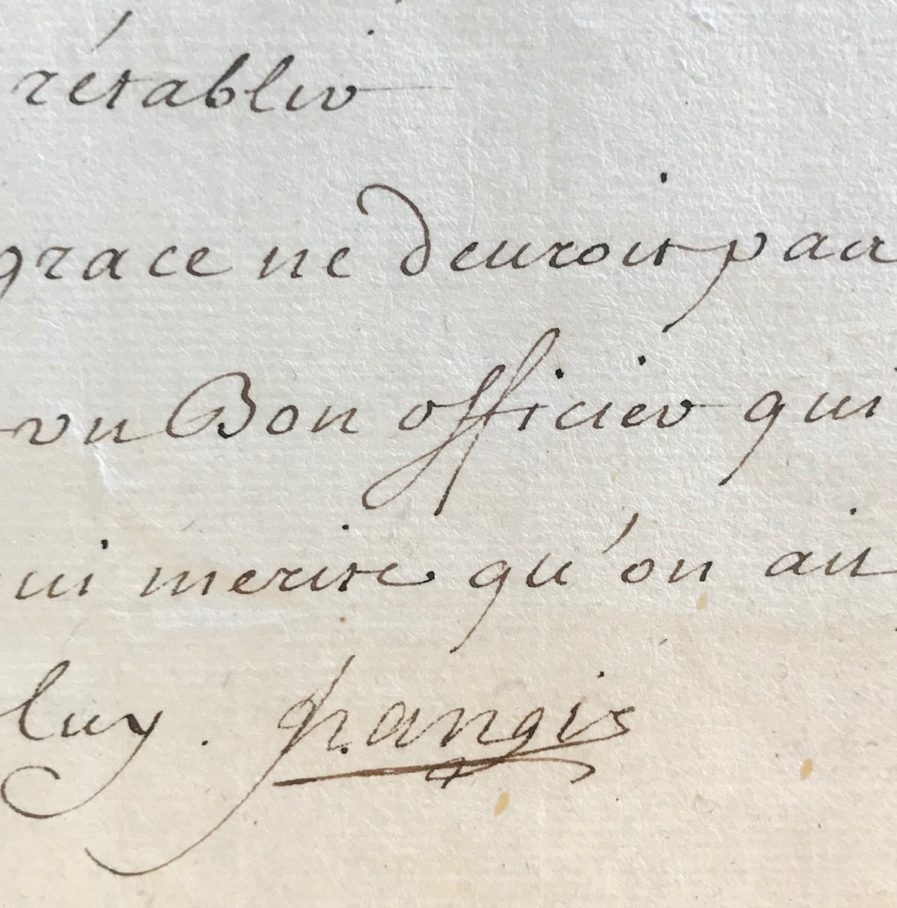 rétablir
grace ne devroit pas
un Bon officier qui
qui merite qu'on ait
luy.